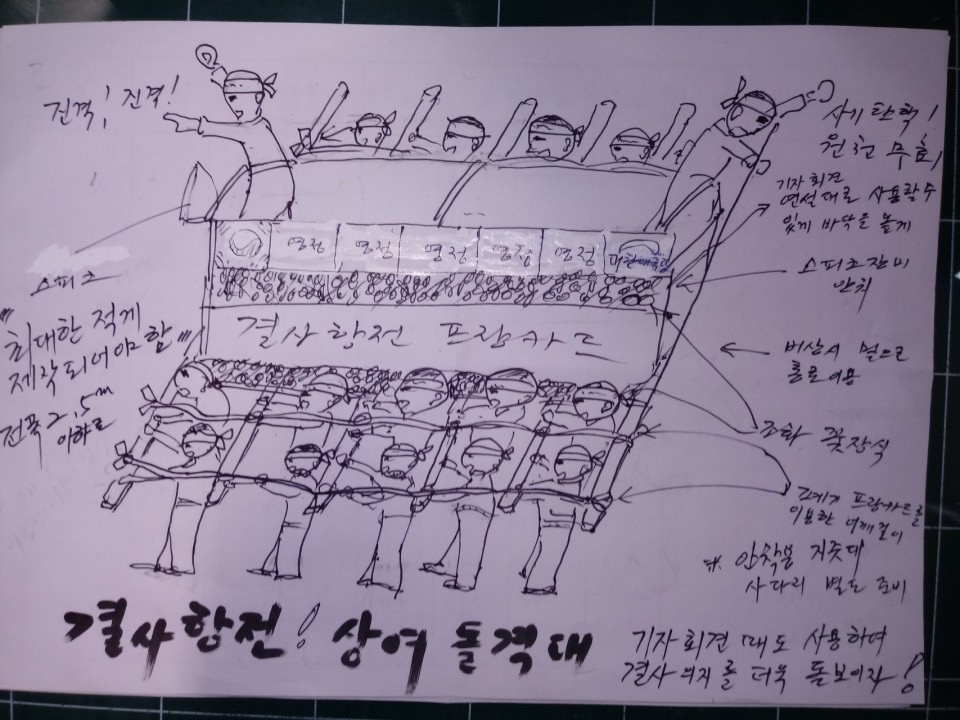 진격! 진격!
사기 탄핵!
원천 무효!
기자회견
연설대로 사용할수
있게 바닥을 높게
영정 영정 영정 영정 영정
스피커장비
안치
스피커
결사항전 프랑카드
"최대한 적게
제작되어야 함"
전폭 2.5m
이하로
비상시 별도로
조화 꽃장식
프랑카드를
이용한 어깨걸이
* 안착용 지줏대
사다리 별도 준비
결사항전! 상여 돌격대
기자회견 때도 사용하여
결사 의지를 더욱 돋보이자!